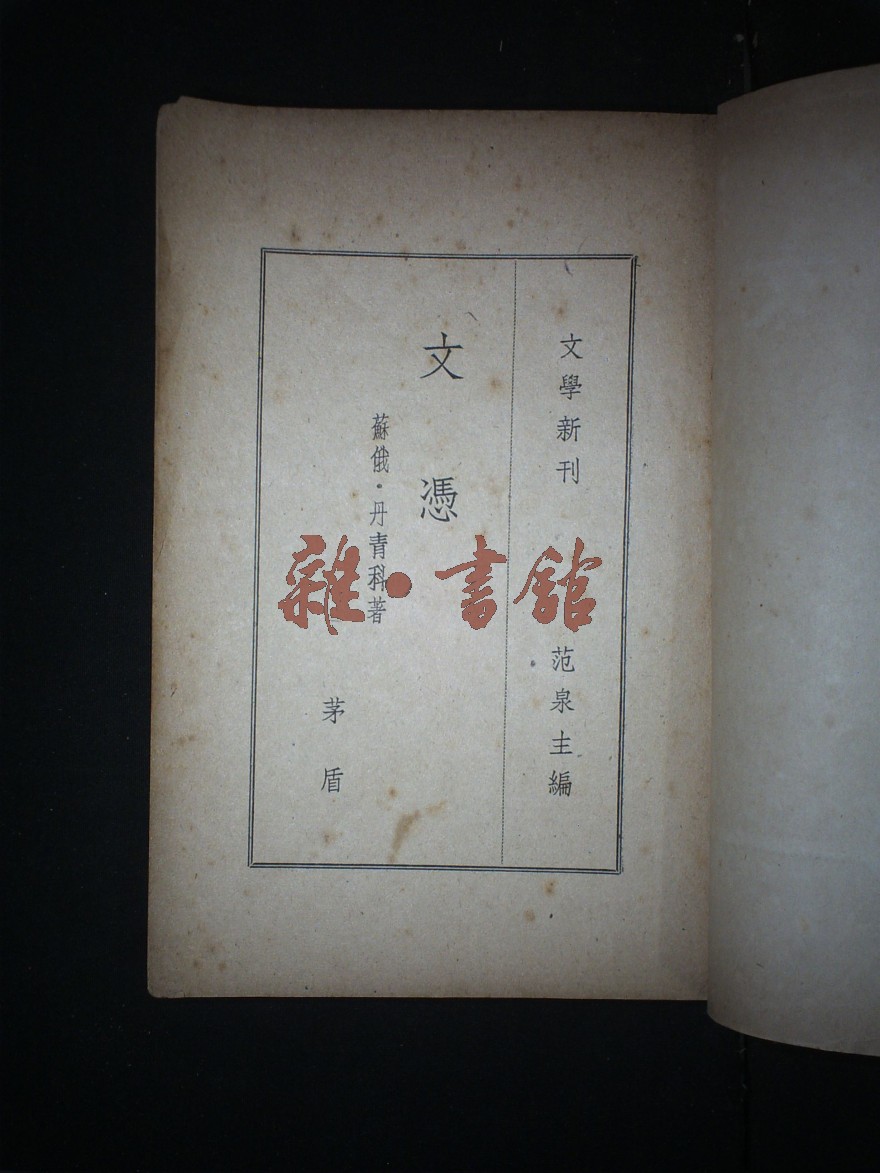 文學新刊
范泉主編
文憑
蘇俄·丹青科著
茅盾
雜·書館